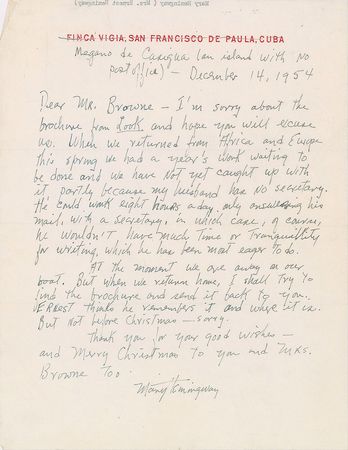 Mary Hemingway (Mrs. Ernest Hemingway)
FINCA VIGIA, SAN FRANCISCO DE PAULA, CUBA
Megano de Casigua (an island with no
post office) - December 14, 1954
Dear Mr. Browne - I'm sorry about the
brochure from Look and hope you will excuse
us. When we returned from Africa and Europe
this spring we had a year's work waiting to
be done and we have not yet caught up with
it partly because my husband has no secretary.
He could work eight hours a day, only answering his
mail, with a secretary, in which case, of course,
he wouldn't have much time or tranquillity
for writing, which he has been most eager to do.
At the moment we are away on our
boat. But when we return home, I shall try to
find the brochure and send it back to you.
ERNEST thinks he remembers it and where it is.
But not before Christmas - sorry.
Thank you for your good wishes -
and Merry Christmas to you and Mrs.
Browne too.
Mary Hemingway